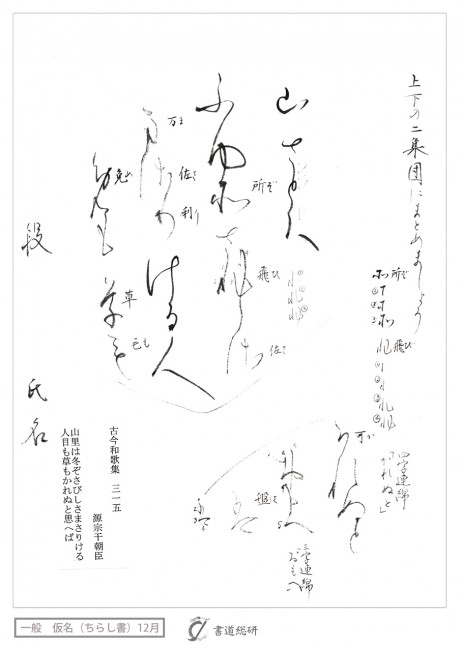 上下の二集団にまとめましょう
所ぞ
飛び
四字連綿
「かれぬと」
山さとハ
ふゆ所
所ぞ
さ飛し佐
飛び
佐さ
万ま
佐さ
利り
ける人
免め
草
毛も
可か
盤は
三字連綿
おもへ
段
氏名
古今和歌集 三一五
源宗于朝臣
山里は冬ぞさびしさまさりける
人目も草もかれぬと思へば
一般 仮名(ちらし書)12月
書道総研